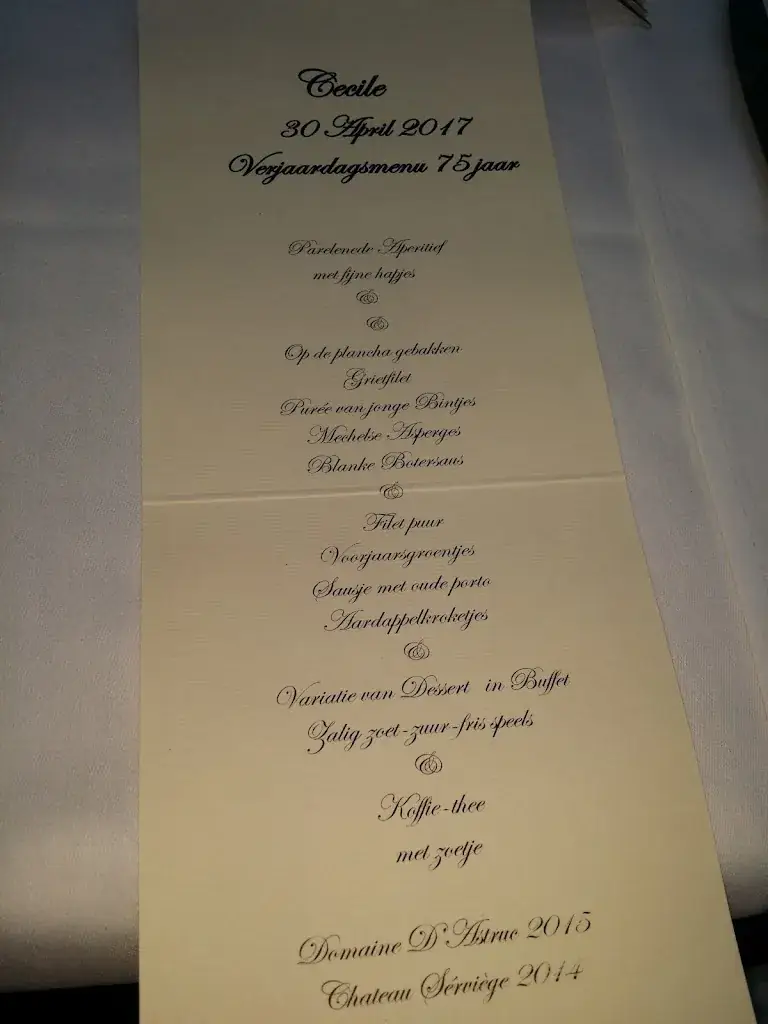 Cecile
30 April 2017
Verjaardagsmenu 75 jaar
Parelenede Aperitief
met fijne hapjes
&
&
Op de plancha gebakken
Grietfilet
Purée van jonge Bintjes
Mechelse Asperges
Blanke Botersaus
&
Filet puur
Voorjaarsgroentjes
Sausje met oude porto
Aardappelkroketjes
&
Variatie van Dessert in Buffet
Zalig zoet-zuur-fris speels
&
Koffie-thee
met zoetje
Domaine D'Astruc 2015
Chateau Sérviège 2014